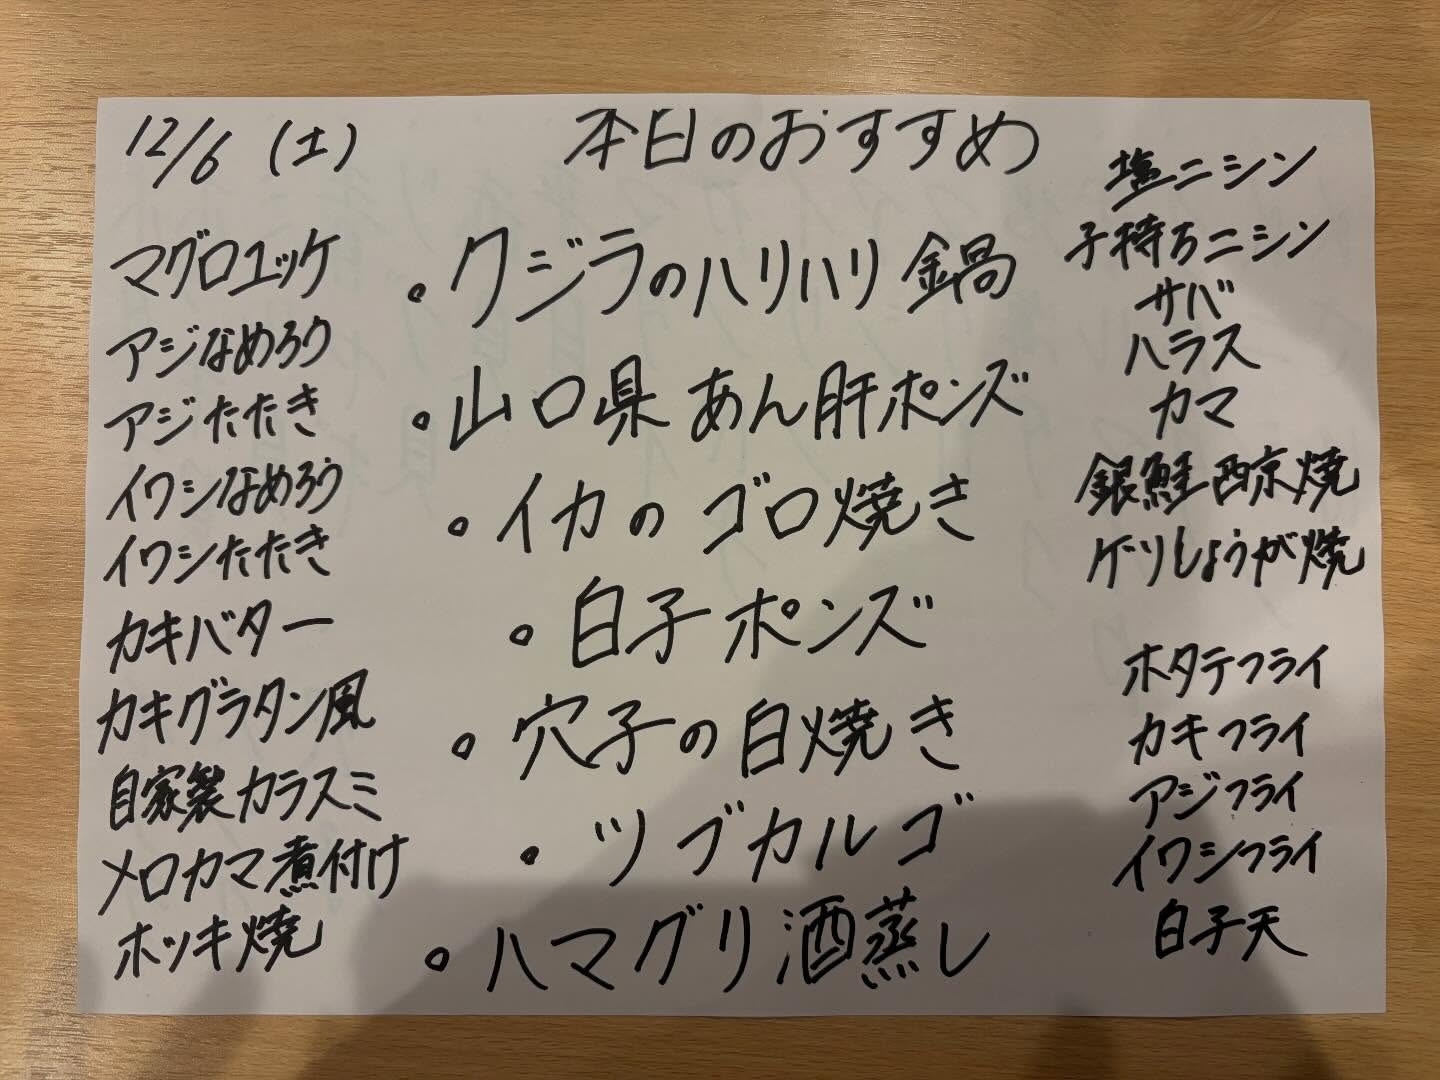 12/6 (土)
本日のおすすめ
マグロユッケ
アジなめろう
アジたたき
イワシなめろう
イワシたたき
カキバター
カキグラタン風
自家製カラスミ
メロカマ煮付け
ホッキ焼
・クジラのハリハリ鍋
・山口県あん肝ポンズ
・イカのゴロ焼き
・白子ポンズ
・穴子の白焼き
・ツブカルゴ
・ハマグリ酒蒸し
塩ニシン
子持ちニシン
サバ
ハラス
カマ
銀鮭西京焼
ゲソしょうが焼
ホタテフライ
カキフライ
アジフライ
イワシフライ
白子天